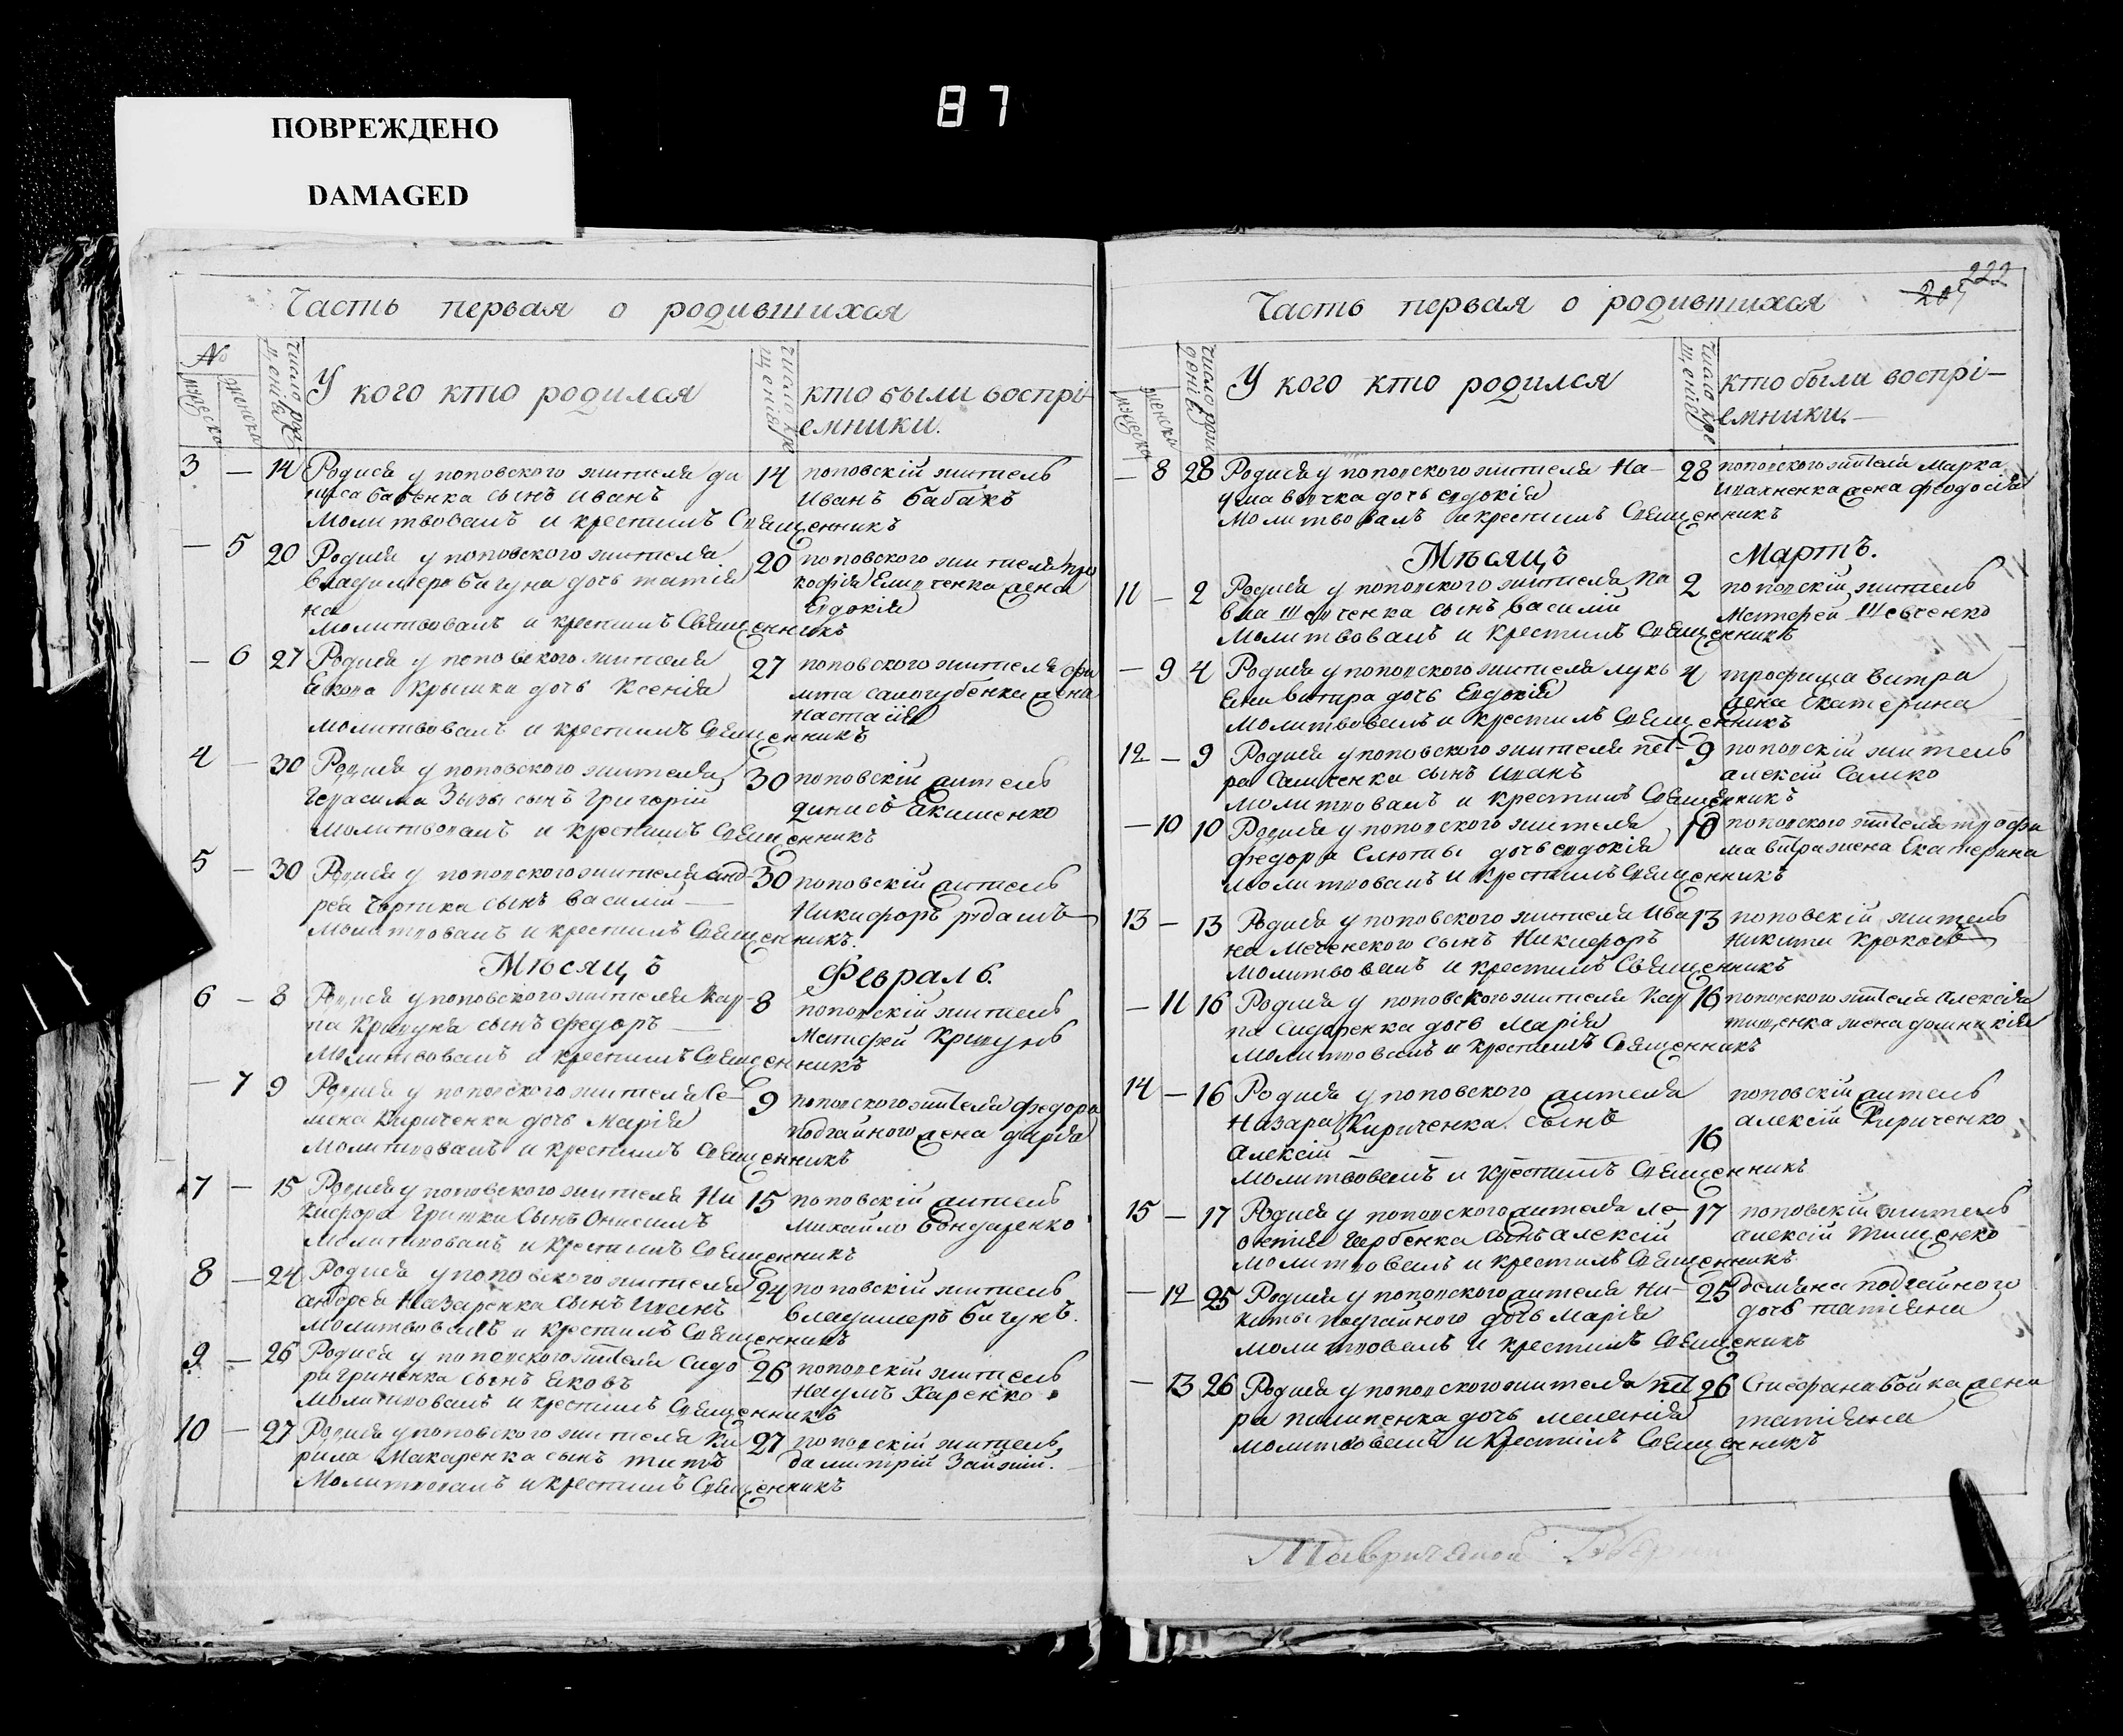 87
ПОВРЕЖДЕНО
DAMAGED
Часть первая о родившихся
№
мужеска
женска
число рож
деніѧ
У кого кто родился
число кре
щеніѧ
кто были воспрі-
емники.
3 — 14 Родися у поповского жителя ди 14 поповскій житель
ниса бабенка сынъ иванъ Иванъ бабакъ
молитвовалъ и крестилъ Священникъ
— 5 20 Родися у поповского жителя 20 поповского жителя про
владимера бигуна дочь татія кофія жена
на Евдокія
молитвовалъ и крестилъ Священникъ
— 6 27 Родися у поповского жителя 27 поповского жителя фи
Якова крышки дочь Ксенія самогубенка жена
настасія
молитвовалъ и крестилъ Священникъ
4 — 30 Родися у поповского жителя 30 поповскій житель
Герасима Зызы сынъ Григорій динисъ Якименко
молитвовалъ и крестилъ Священникъ
5 — 30 Родися у поповского жителя анд- 30 поповскій житель
рея сынъ василій — Никифоръ
молитвовалъ и крестилъ Священникъ.
Мѣсяцъ Февраль.
6 — 8 Родися у поповского жителя кар- 8 поповскій житель
па Крипуна сынъ федоръ — Матфей Крипунъ
молитвовалъ и крестилъ Священникъ
— 7 9 Родися у поповского жителя Се- 9 поповского жителя федора
мена Кириченка дочь Марія подгайного жена дарія
молитвовалъ и крестилъ Священникъ
7 — 15 Родися у поповского жителя Ни 15 поповскій житель
кифора Гришки Сынъ Онисимъ Михайло бондаренко
молитвовалъ и крестилъ Священникъ
8 — 24 Родися у поповского жителя 24 поповскій житель
андрея Назаренка сынъ Иванъ владимеръ бигунъ.
молитвовалъ и крестилъ Священникъ
9 — 26 Родися у поповского жителя сидо 26 поповскій житель
ра Гриненка сынъ Яковъ наумъ Харенко
молитвовалъ и крестилъ Священникъ
10 — 27 Родися у поповского жителя ки 27 поповскій житель
рила Макаренка сынъ титъ
Молитвовалъ и крестилъ Священникъ
222
205
Часть первая о родившихся
мужеска
женска
число рож
деніѧ
У кого кто родился
число кре
щеніѧ
кто были воспрі-
емники.—
— 8 28 Родися у поповского жителя на- 28 поповского жителя Марка
ума вовчка дочь евдокія Ивахненка жена феодосія
Молитвовалъ и крестилъ Священникъ
Мѣсяцъ Мартъ.
11 — 2 Родися у поповского жителя па 2 поповскій житель
вла шевченка сынъ василій Матфей Шевченко
молитвовалъ и крестилъ Священникъ
— 9 4 Родися у поповского жителя лукь 4 трофима витра
яна витра дочь Евдокія жена Екатерина
молитвовалъ и крестилъ Священникъ
12 — 9 Родися у поповского жителя пет- 9 поповскій житель
ра Самченка сынъ иванъ алексій Самко
молитвовалъ и крестилъ Священникъ
— 10 10 Родися у поповского жителя 10 поповского жителя трофи
федора Слюты дочь евдокія ма витра жена Екатерина
молитвовалъ и крестилъ Священникъ
13 — 13 Родися у поповского жителя ива 13 поповскій житель
на Меченского сынъ Никифоръ Никита
молитвовалъ и крестилъ Священникъ
— 11 16 Родися у поповского жителя кар 16 поповского жителя алексія
па Сидаренка дочь Марія тищенка жена домникія
молитвовалъ и крестилъ Священникъ
14 — 16 Родися у поповского жителя поповскій житель
Назара Кириченка. сынъ алексій Кириченко
алексій — 16
молитвовалъ и крестилъ Священникъ
15 — 17 Родися у поповского жителя ле- 17 поповскій житель
онтія Гарбенка Сынъ алексій алексій тищенко
молитвовалъ и крестилъ Священникъ
— 12 25 Родися у поповского жителя ни- 25 демяна подгайного
киты подгайного дочь Марія дочь татіяна
молитвовалъ и крестилъ Священикъ
— 13 26 Родися у поповского жителя пет 26 Стефана бойка жена
ра пилипенка дочь меланія татіяна
молитвовалъ и крестилъ Священникъ
Таврической